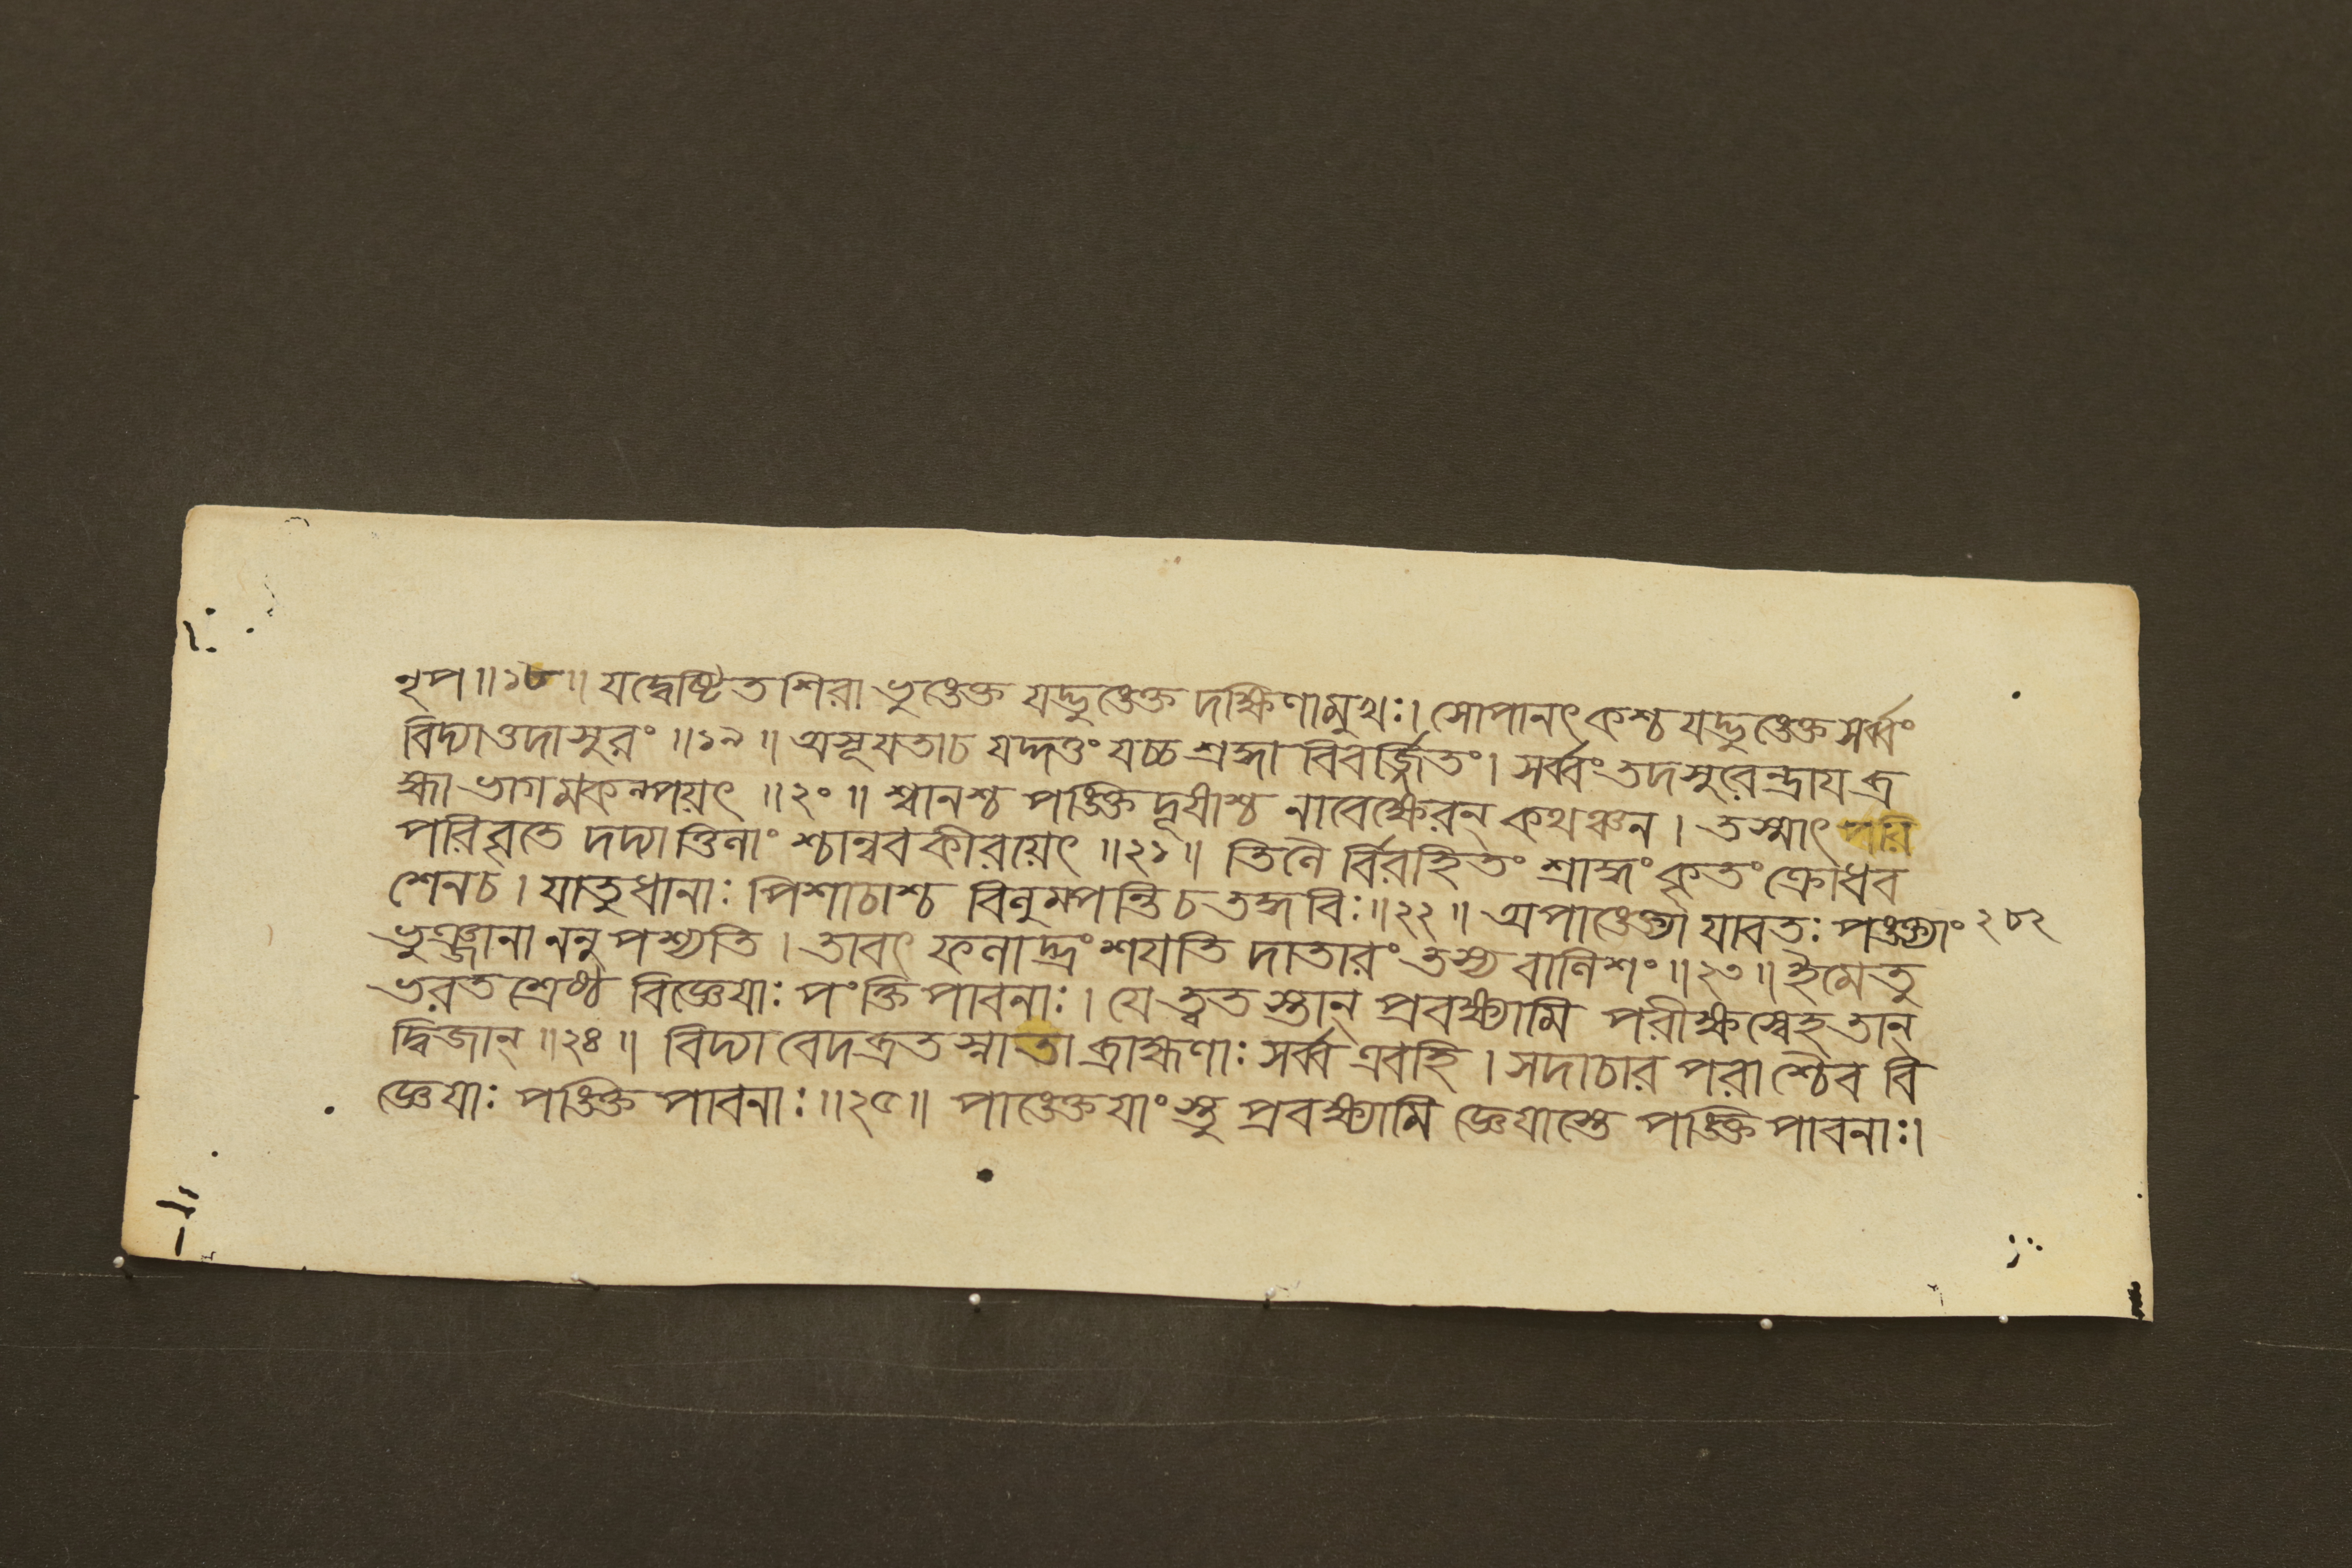 নৃপ ॥১৮॥ যদ্বেষ্টিত শিরা ভুঙেক্ত যদ্ভুঙেক্ত দক্ষিণামুখঃ। সোপানৎ কশ্চ যদ্ভুঙেক্ত সর্ব্বং
বিদ্যাওদাসুরং ॥১৯॥ অসূযতাচ যদ্দত্তং যচ্চ শ্রদ্ধা বিবর্জ্জিতং। সর্ব্বং তদসুরেন্দ্রায ব্র
হ্মা ভাগমকল্পয়ৎ ॥২০॥ শ্বানশ্চ পঙ্ক্তি দূষাশ্চ নাবেক্ষেরন্ কথঞ্চন। তস্মাৎ পরি
পরিবৃতে দদ্যাত্তিনাং শ্চান্ববকীরয়েৎ ॥২১॥ তিনৈ র্বিরহিতং শ্রাদ্ধং কৃতং ক্রোধব
শেনচ। যাতুধানাঃ পিশাচাশ্চ বিনুম্পন্তি চ তদ্ধবিঃ॥২২॥ অপাঙেক্ত্যা যাবতঃ পঙ্ক্ত্যাং ২৮২
ভুঞ্জানা ননু পশ্যতি। তাবৎ ফনাদ্ভ্রংশযতি দাতারং তস্য বানিশং॥২৩॥ ইমে তু
ভরত শ্রেষ্ঠ বিজ্ঞেযাঃ পংক্তি পাবনাঃ। যে ত্বত স্তান্ প্রবক্ষ্যামি পরীক্ষস্বেহ তান্
দ্বিজান্ ॥২৪॥ বিদ্যা বেদব্রত স্নাতা ব্রাহ্মণাঃ সর্ব্ব এবহি। সদাচার পরাশ্চৈব বি
জ্ঞেযাঃ পঙ্ক্তি পাবনাঃ॥২৫॥ পাঙেক্ত যাংস্তু প্রবক্ষ্যামি জ্ঞেযাস্তে পঙ্ক্তি পাবনাঃ।